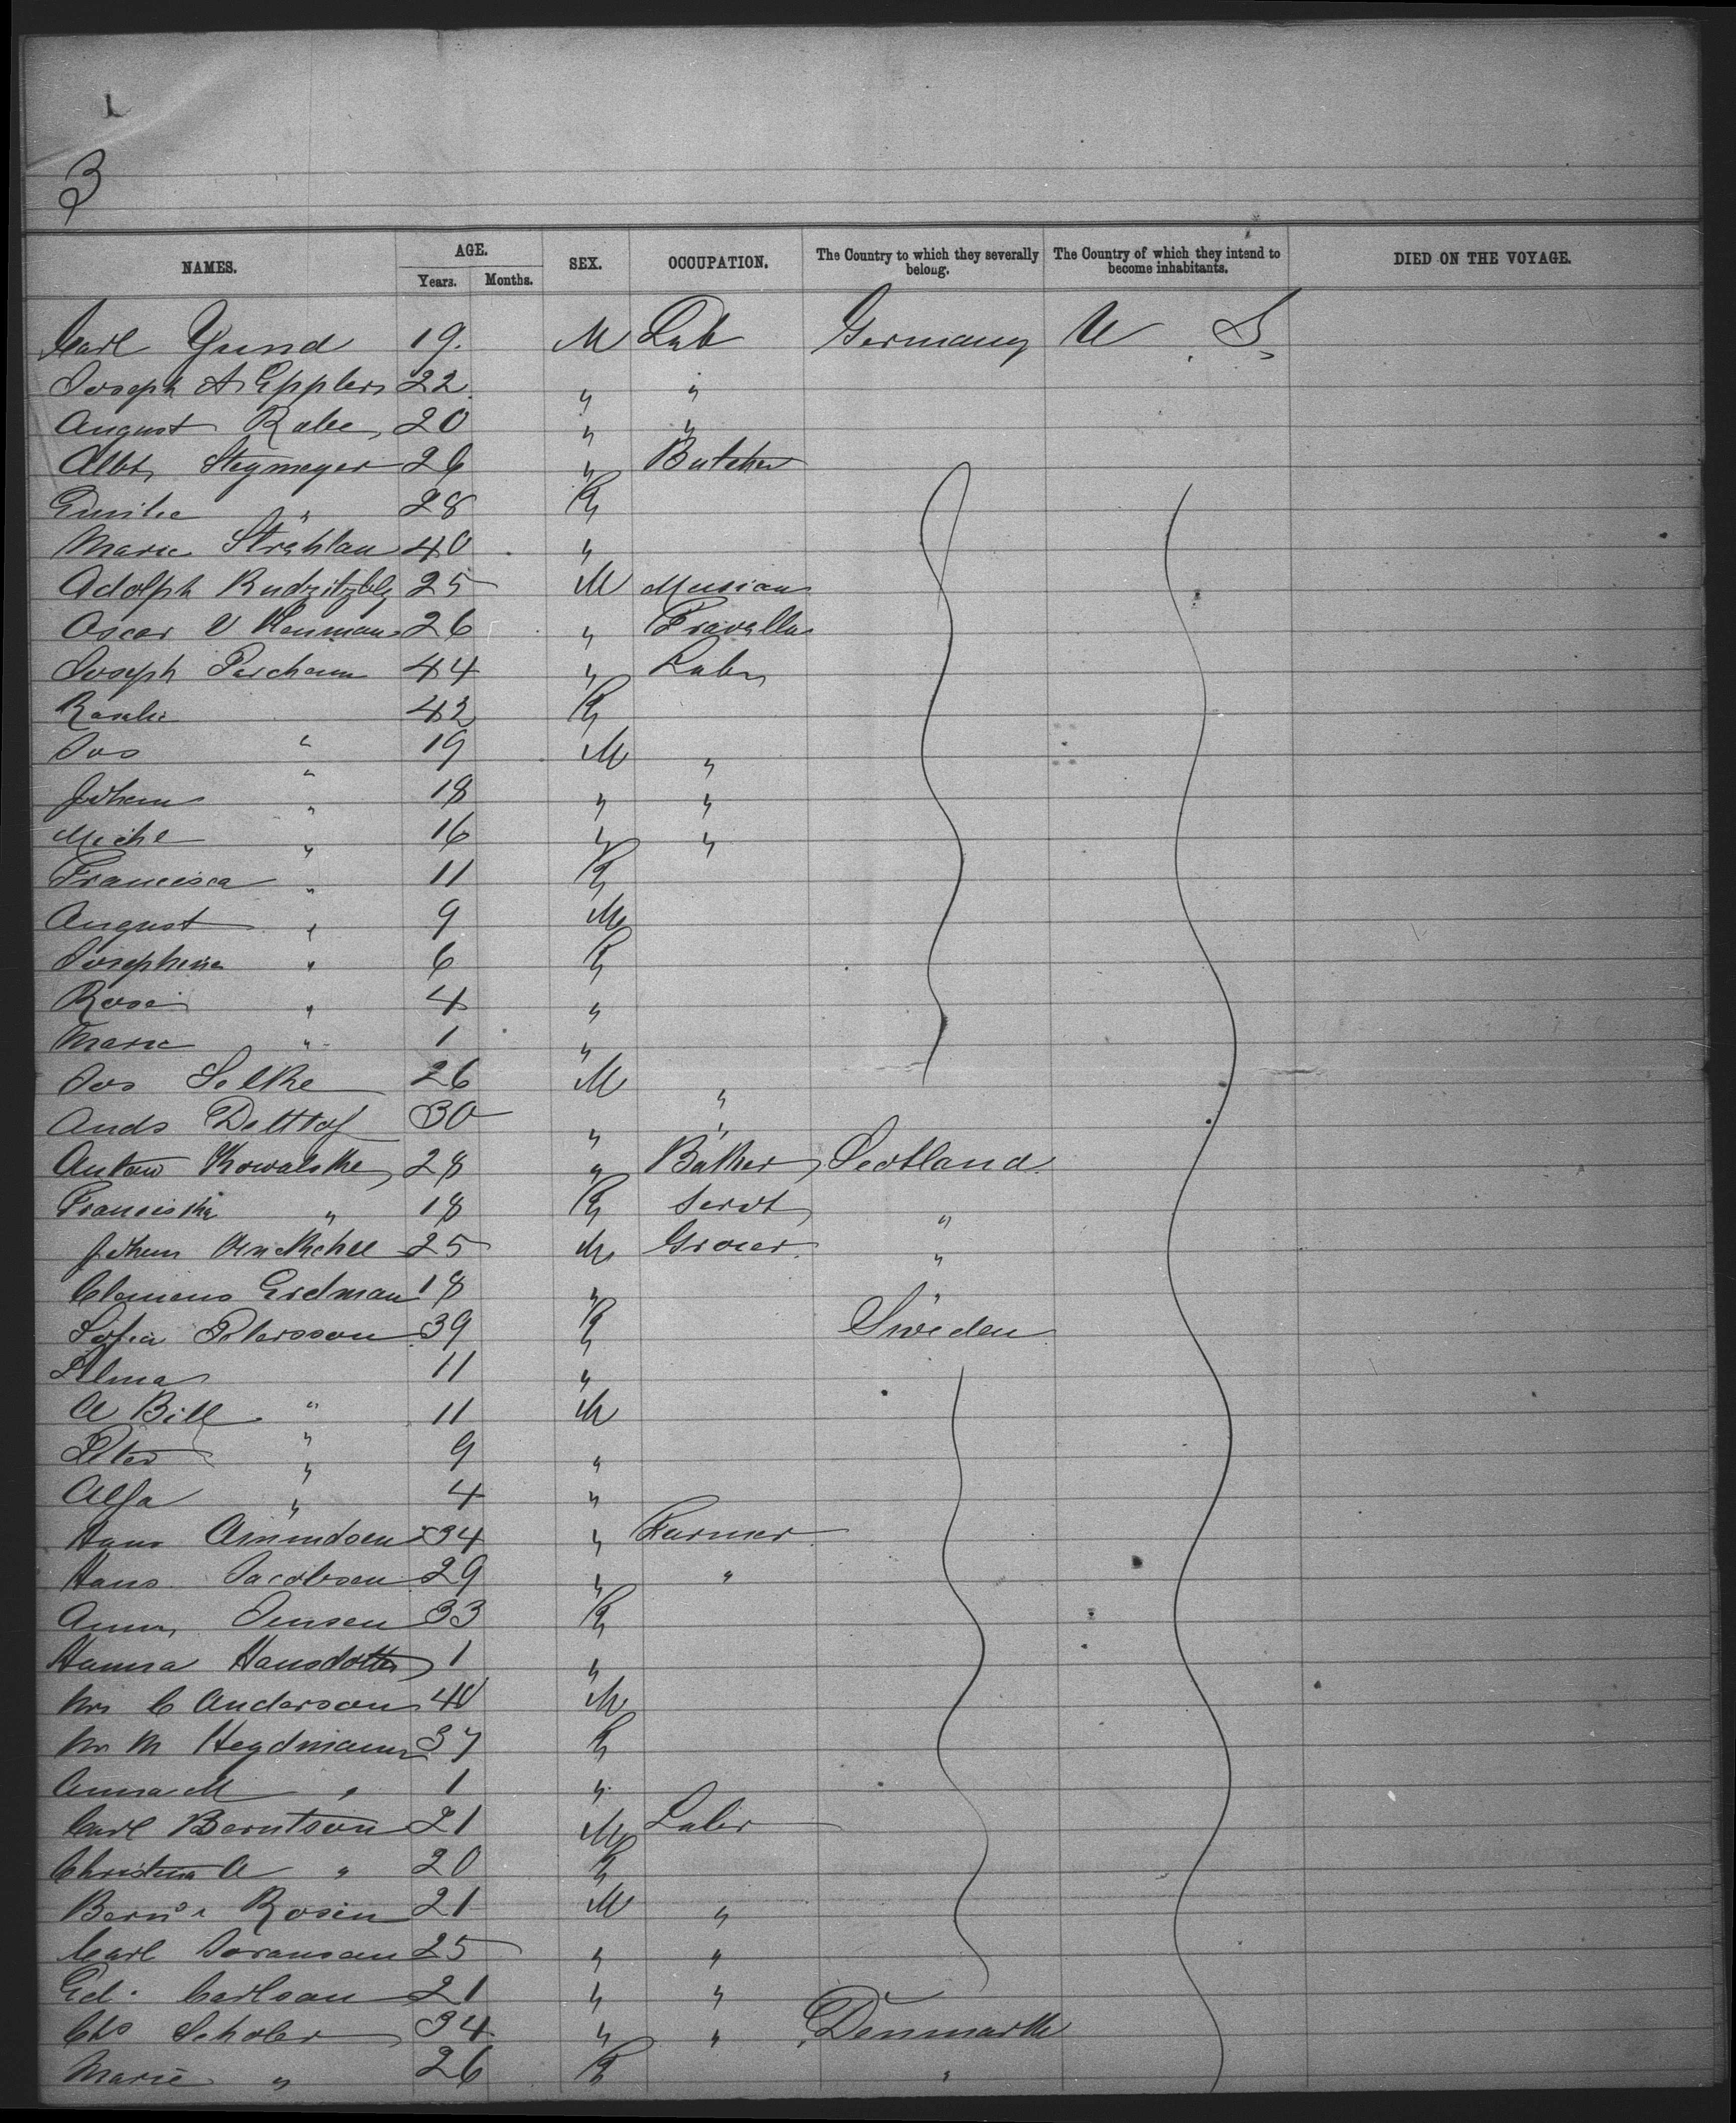 1
3
NAMES. AGE. SEX. OCCUPATION. The Country to which they severally belong. The Country of which they intend to become inhabitants. DIED ON THE VOYAGE.
Years. Months.
Carl 19. M Lab Germany U S
Joseph A Eppler 22 " "
August Rabe 20 " "
Albt Stegmeyer 26 " Butcher
Emilie " 28 F
Marie Strehlau 40 "
Adolph 25 M Musician
Oscar V 26 " Traveller
Joseph 44 " Labr
Rosalie 42 F
Jos " 19 M "
Johann " 18 " "
Michl " 16 " "
Francisca " 11 F
August " 9 M
Josephine " 6 F
Rosa " 4 "
Marie " 1 "
Jos Selke 26 M "
Ands Dettlaf 30 " "
Anton Kowalske 28 " Baker Scotland
Franciska " 18 F Servt "
Johann 25 M Grocer "
Clemens Erdman 18 " "
Sofia Petersson 39 F Sweden
11 "
A Bill " 11 M
Peter " 9 "
Alfa " 4 "
Hans Amundsen 34 " Farmer
Hans Jacobsen 29 " "
Anna Jensen 33 F
Hanna Hansdotter 1 "
C Anderson 40 M
M 37 F
Anna M " 1 "
Carl Berntson 21 M Labr
Christina A " 20 F
Rosin 21 M "
Carl Soransan 25 " "
Ed. Carlson 21 " "
Chs Scholer 34 " " Denmark
Marie " 26 F "